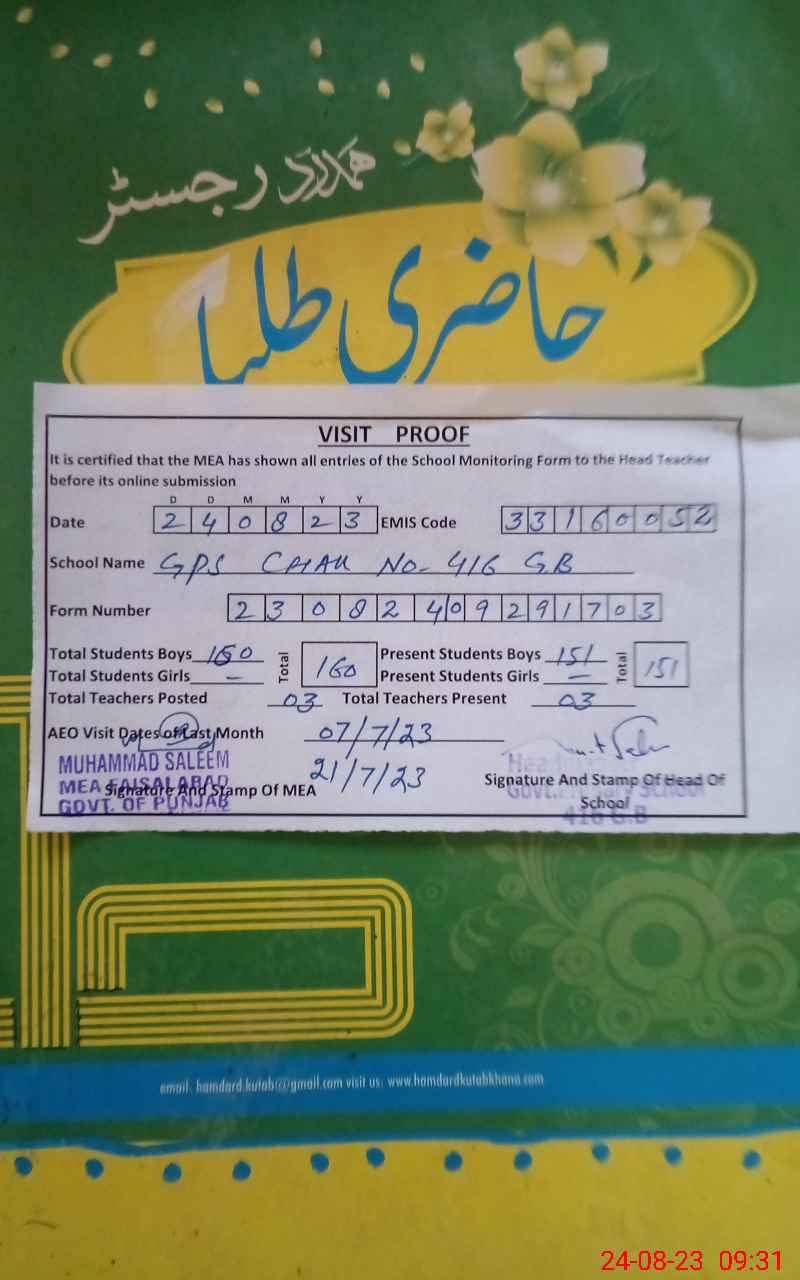 ہمدرد رجسٹر
حاضری طلبا
VISIT PROOF
It is certified that the MEA has shown all entries of the School Monitoring Form to the Head Teacher
before its online submission
D D M M Y Y
Date 2 4 0 8 2 3 EMIS Code 3 3 1 6 0 0 5 2
School Name GPS CHAK No- 416 G.B
Form Number 2 3 0 8 2 4 0 9 2 9 1 7 0 3
Total Students Boys 160 Total 160 Present Students Boys 151 Total 151
Total Students Girls — Present Students Girls —
Total Teachers Posted 03 Total Teachers Present 03
AEO Visit Dates of Last Month 07/7/23
21/7/23
MUHAMMAD SALEEM
MEA FAISALABAD
GOVT. OF PUNJAB
Signature And Stamp Of MEA
Signature And Stamp Of Head Of
School
416 G.B
email: hamdard.kutab@gmail.com visit us: www.hamdardkutabkhana.com
24-08-23 09:31